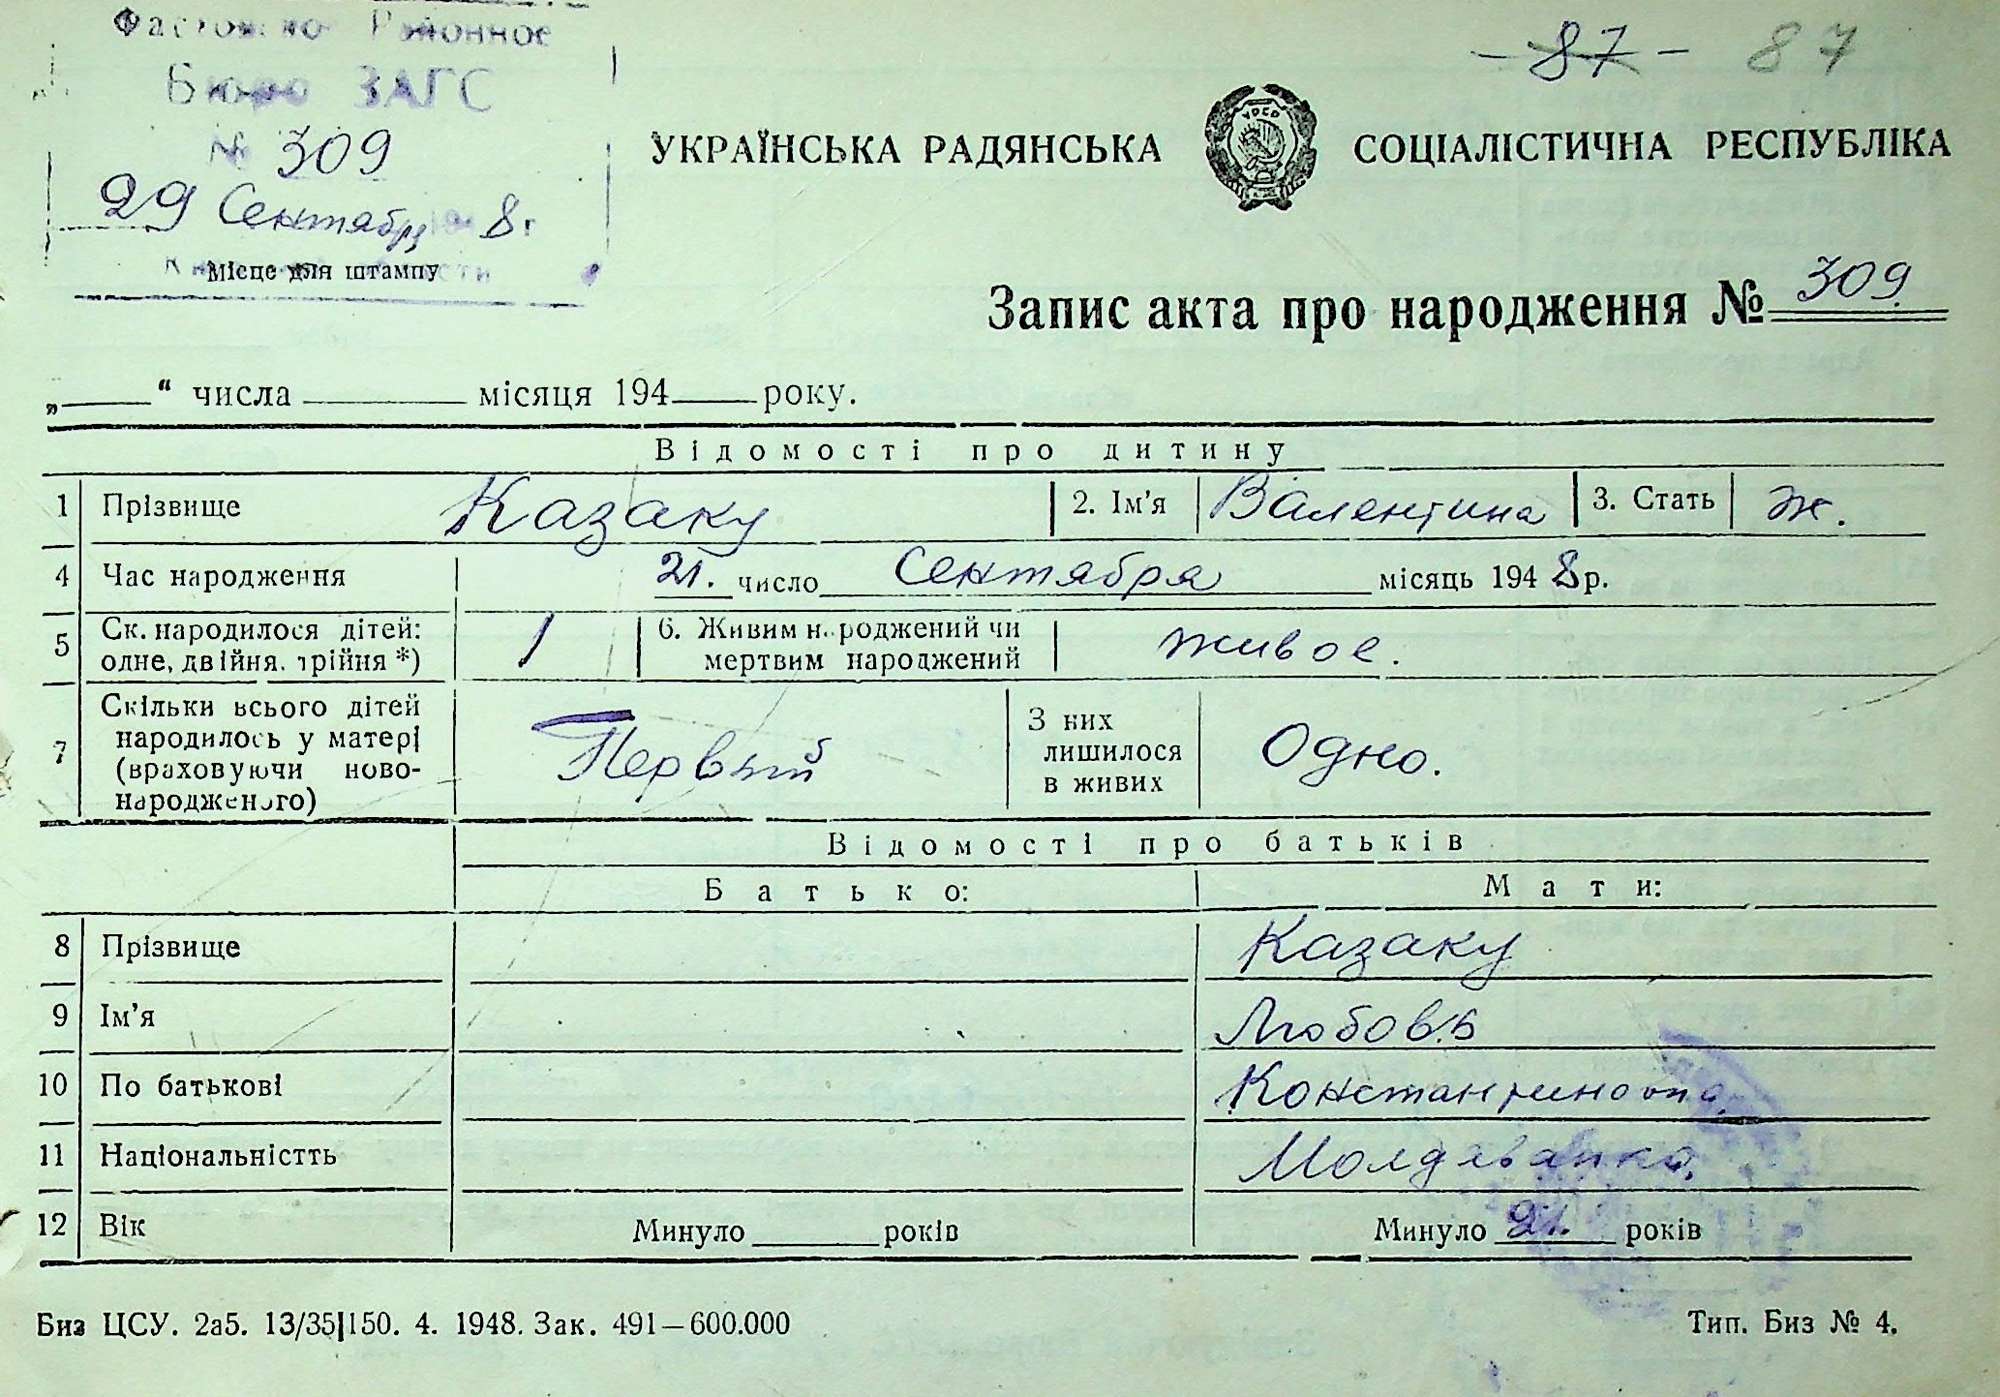 Районное
Бюро ЗАГС
№ 309
29 Сентября 8 г
Місце для штампу
- 87 - 87
УКРАЇНСЬКА РАДЯНСЬКА СОЦІАЛІСТИЧНА РЕСПУБЛІКА
УРСР
Запис акта про народження № 309.
„____“ числа ________ місяця 194____року.
Відомості про дитину
1 Прізвище Казаку 2. Ім'я Валентина 3. Стать ж.
4 Час народження 21. число Сентября місяць 1948р.
5 Ск. народилося дітей: 1 6. Живим народжений чи живое.
одне, двійня, трійня *) мертвим народжений
7 Скільки всього дітей Первый З них Одно.
народилось у матері лишилося
(враховуючи ново- в живих
народженого)
Відомості про батьків
Батько: Мати:
8 Прізвище Казаку
9 Ім'я Любовь
10 По батькові Константиновна
11 Національністть Молдаванка
12 Вік Минуло ______ років Минуло 21. років
Биз ЦСУ. 2а5. 13/35|150. 4. 1948. Зак. 491—600.000 Тип. Биз № 4.